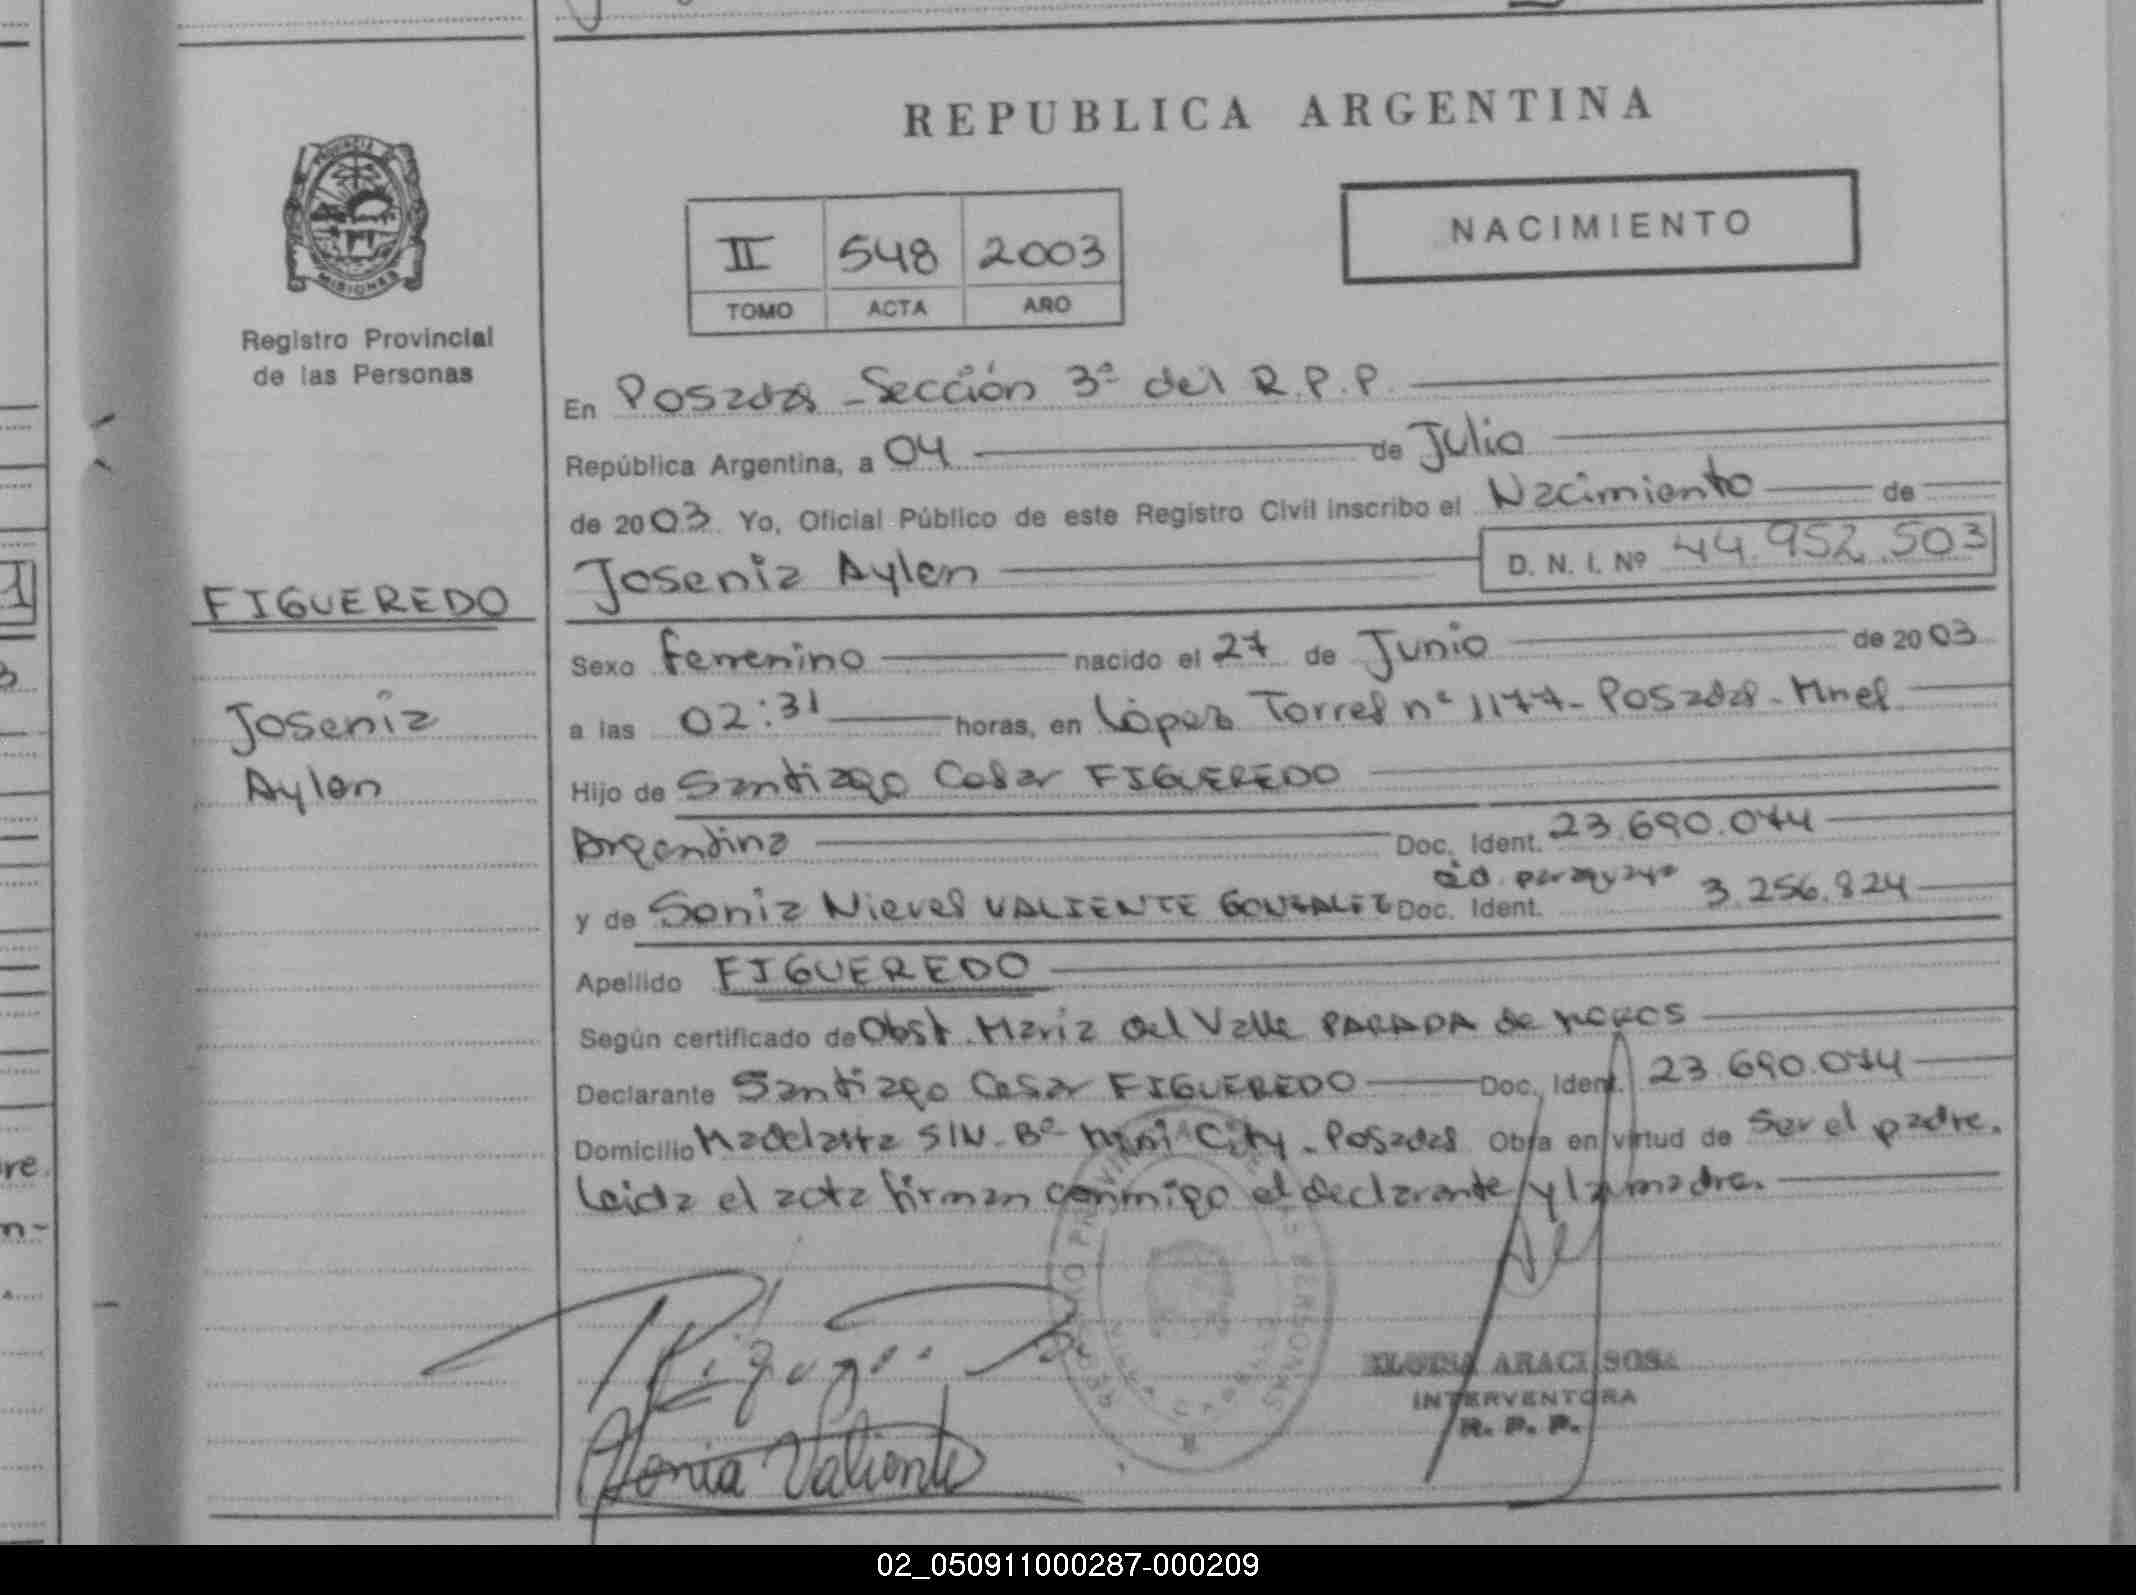 REPUBLICA ARGENTINA
NACIMIENTO
II 548 2003
TOMO ACTA AÑO
PROVINCIA
MISIONES
Registro Provincial
de las Personas
En Posadas - Sección 3ª del R.P.P.
República Argentina, a 04 de Julio
de 2003 Yo, Oficial Público de este Registro Civil inscribo el Nacimiento de
Josenia Aylen D. N. I. Nº 44.952.503
FIGUEREDO
Josenia
Aylen
Sexo femenino nacido el 27 de Junio de 2003
a las 02:31 horas, en López Torres nº 1177 - Posadas - Mnes
Hijo de Santiago Cesar FIGUEREDO
Argentina Doc. Ident. 23.690.074
céd. paraguaya
y de Sonia Nieves VALIENTE GONZALEZ Doc. Ident. 3.256.824
Apellido FIGUEREDO
Según certificado de Obst. Maria del Valle PARADA de
Declarante Santiago Cesar FIGUEREDO Doc. Ident. 23.690.074
Domicilio S/N - Bº Mini City - Posadas Obra en virtud de Ser el padre.
Leida el acta firman conmigo el declarante y la madre.
Sonia Valiente
ARACI SOSA
INTERVENTORA
R. P. P.
02_050911000287-000209